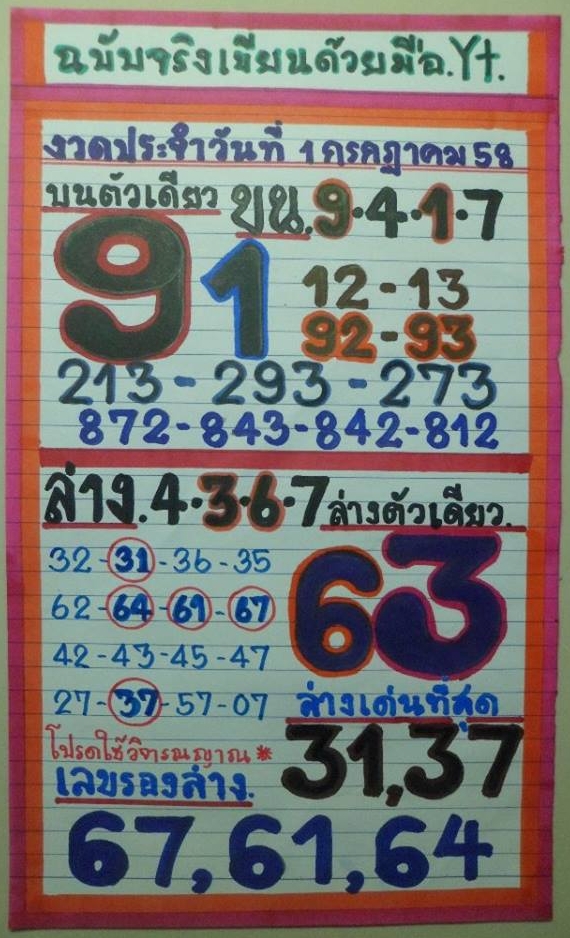 ฉบับจริงเขียนด้วยมือ.Yt.
งวดประจำวันที่ 1 กรกฎาคม 58
บนตัวเดียว บน.9.4.1.7
91
12-13
92-93
213-293-273
872-843-842-812
ล่าง.4.3.6.7 ล่างตัวเดียว.
32-31-36-35
62-64-61-67
63
42-43-45-47
27-37-57-07
ล่างเด่นที่สุด
โปรดใช้วิจารณญาณ*
31,37
เลขรองล่าง.
67,61,64